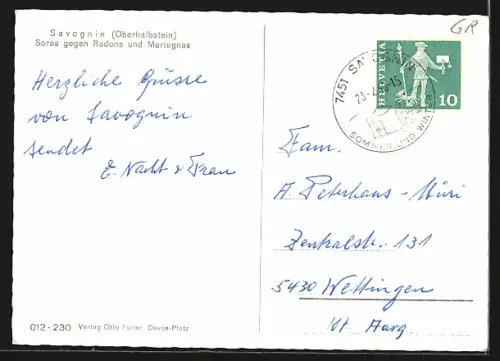 Savognin (Oberhalbstein)
Soras gegen Radons und Martegnas
GR
7451 SAVOGNIN
SOMMER UND WINT
HELVETIA
10
Herzliche Grüsse
von Savognin
sendet
E. Nacht & Frau
Fam.
A. Peterhans-Müri
Zentralstr. 131
5430 Wettingen
Kt Aarg
012 - 230 Verlag Otto Furter Davos-Platz